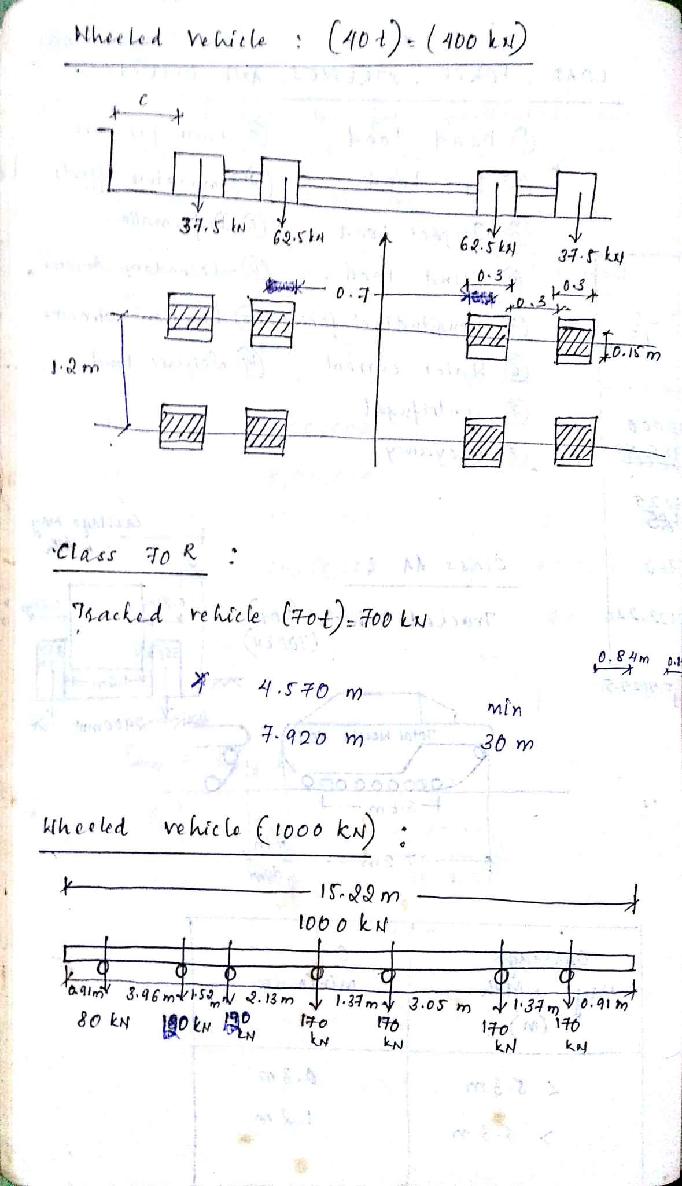 Wheeled Vehicle : (40 t) = (400 kN)
C
37.5 kN 62.5 kN 62.5 kN 37.5 kN
0.7 0.3 0.3
0.3
1.2 m 0.15 m
Class 70 R :
Tracked vehicle (70t) = 700 kN
0.84m
* 4.570 m min
7.920 m 30 m
Wheeled vehicle (1000 kN) :
15.22 m
1000 kN
0.91m 3.96 m 1.52 m 2.13 m 1.37m 3.05 m 1.37m 0.91m
80 kN kN kN 170 kN 170 kN 170 kN 170 kN